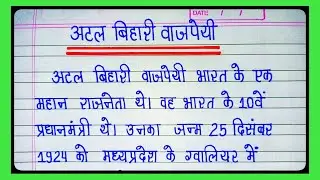 DATE : / /
अटल बिहारी वाजपेयी
अटल बिहारी वाजपेयी भारत के एक
महान राजनेता थे। वह भारत के 10वें
प्रधानमंत्री थे। उनका जन्म 25 दिसंबर
1924 को मध्यप्रदेश के ग्वालियर में